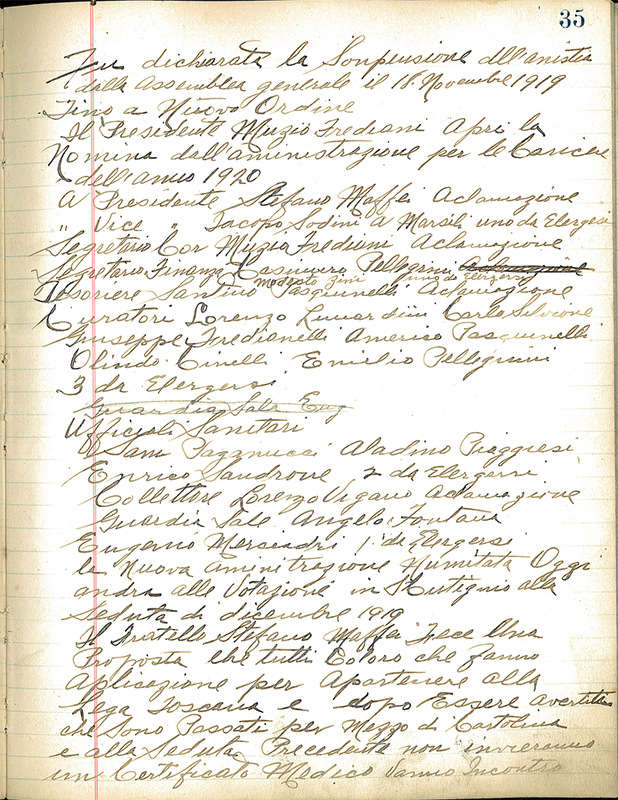 35
Fu dichiarata la Sonpensione dell'anistia
dalla Assemblea generale il 18. Novembre 1919
Fino a Nuovo Ordine
Il Presidente Muzio Frediani Apri la
Nomina dall'aministrazione per le Cariche
dell'anno 1920
A Presidente Stefano Maffei Aclamazione
" Vice " Jacopo Sodini A Marsili uno da Elergesi
Segretario Cor Muzio Frediani Aclamazione
Segretario Finanza Casimiro Pellegrini Aclamazione
Modesto Zini uno da Elergersi
Tesoriere Santino Pasquinelli Aclamazione
Curatori Lorenzo Lunardini Carlo Silvione
Giuseppe Fredianelli Americo Pasquinelli
Olindo Cinelli Emilio Pellegrini
3 da Elergersi
Guardia Sala Eug
Ufficiali Sanitari
Sam Paganucci Aladino Piaggesi
Enrico Sandrone 2 da Elergersi
Collettore Lorenzo Vigano Aclamazione
Guardia Sale Angelo Fontana
Eugenio Mercadri 1 da Elergersi
la Nuova Aministrazione Numitata Oggi
andra alle Votazione in Scrutignio alla
Seduta di dicembre 1919
Il Fratello Stefano Maffei Fece Una
Proposta che tutti Coloro che fanno
Aplicazione per Apartenere alla
Lega Toscana e dopo Essere Avertiti
che Sono Passati per Mezzo di Cartolina
e alla Seduta Precedente non invieranno
un Certificato Medico Vanno Incontro